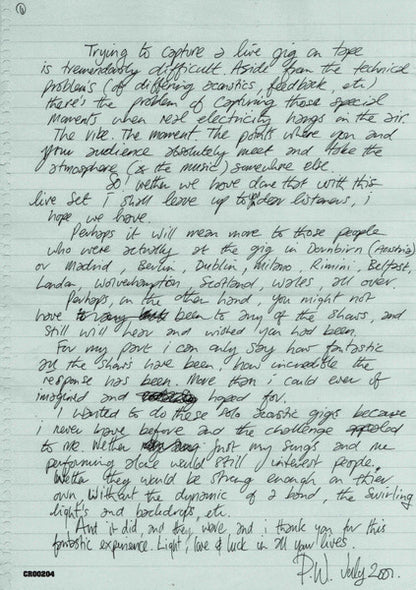 Trying to capture a live gig on tape
is tremendously difficult. Aside from the technical
problems (of differing acoustics, feedback, etc)
there's the problem of capturing those special
moments when real electricity hangs in the air.
The vibe. The moment. The points where you and
your audience absolutely meet and take the
atmosphere (& the music) somewhere else.
So! Wether we have done that with this
live set I shall leave up to you dear listeners, i
hope we have.
Perhaps it will mean more to those people
who were actually at the gig in Dornbirn (Austria)
or Madrid, Berlin, Dublin, Milano, Rimini, Belfast,
London, Wolverhampton, Scotland, Wales, all over.
Perhaps, on the other hand, you might not
have been to any of the shows, and
still will hear and wished you had been.
For my part i can only say how fantastic
all the shows have been, how incredible the
response has been. More than i could ever of
imagined and hoped for.
I wanted to do these solo acoustic gigs because
i never have before and the challenge appealed
to me. Wether just my songs and me
performing alone would still interest people.
Wether they would be strong enough on thier
own, Without the dynamic of a band, the swirling
light's and backdrops, etc.
And it did, and they were and i thank you for this
fantastic experience. Light, love & luck in all your lives.
P.W. July 2001.
CR00204